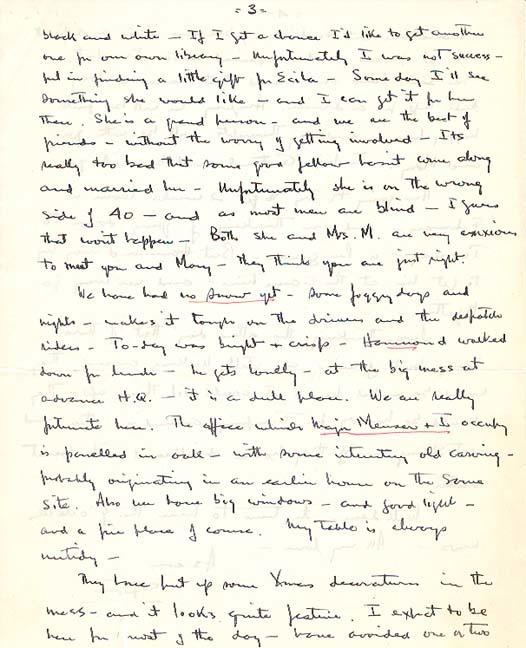 = 3 =
black and white – If I get a chance I'd like to get another
one for our own library – Unfortunately I was not success-
ful in finding a little gift for Ecila – Some day I'll see
something she would like – and I can get it for her
then. She is a grand person – and we are the best of
friends – without the worry of getting involved – Its
really too bad that some good fellow hasnt come along
and married her – Unfortunately she is on the wrong
side of 40 – and as most men are blind – I guess
that wont happen – Both she and Mrs. M. are very anxious
to meet you and Mary – they think you are just right.
We have had no snow yet – some foggy days and
nights – makes it tough on the drivers and the despatch
riders – To-day was bright + crisp – Hammond walked
down for lunch – he gets lonely – at the big mess at
advance H.Q. – it is a dull place. We are really
fortunate here. The office which Major Menser + I occupy
is panelled in oak – with some interesting old carving –
probably originating in an earlier house on the same
site. Also we have big windows – and good light –
and a fire place of course. My table is always
untidy –
They have put up some Xmas decorations in the
mess – and it looks quite festive. I expect to be
here for most of the day – have avoided one or two